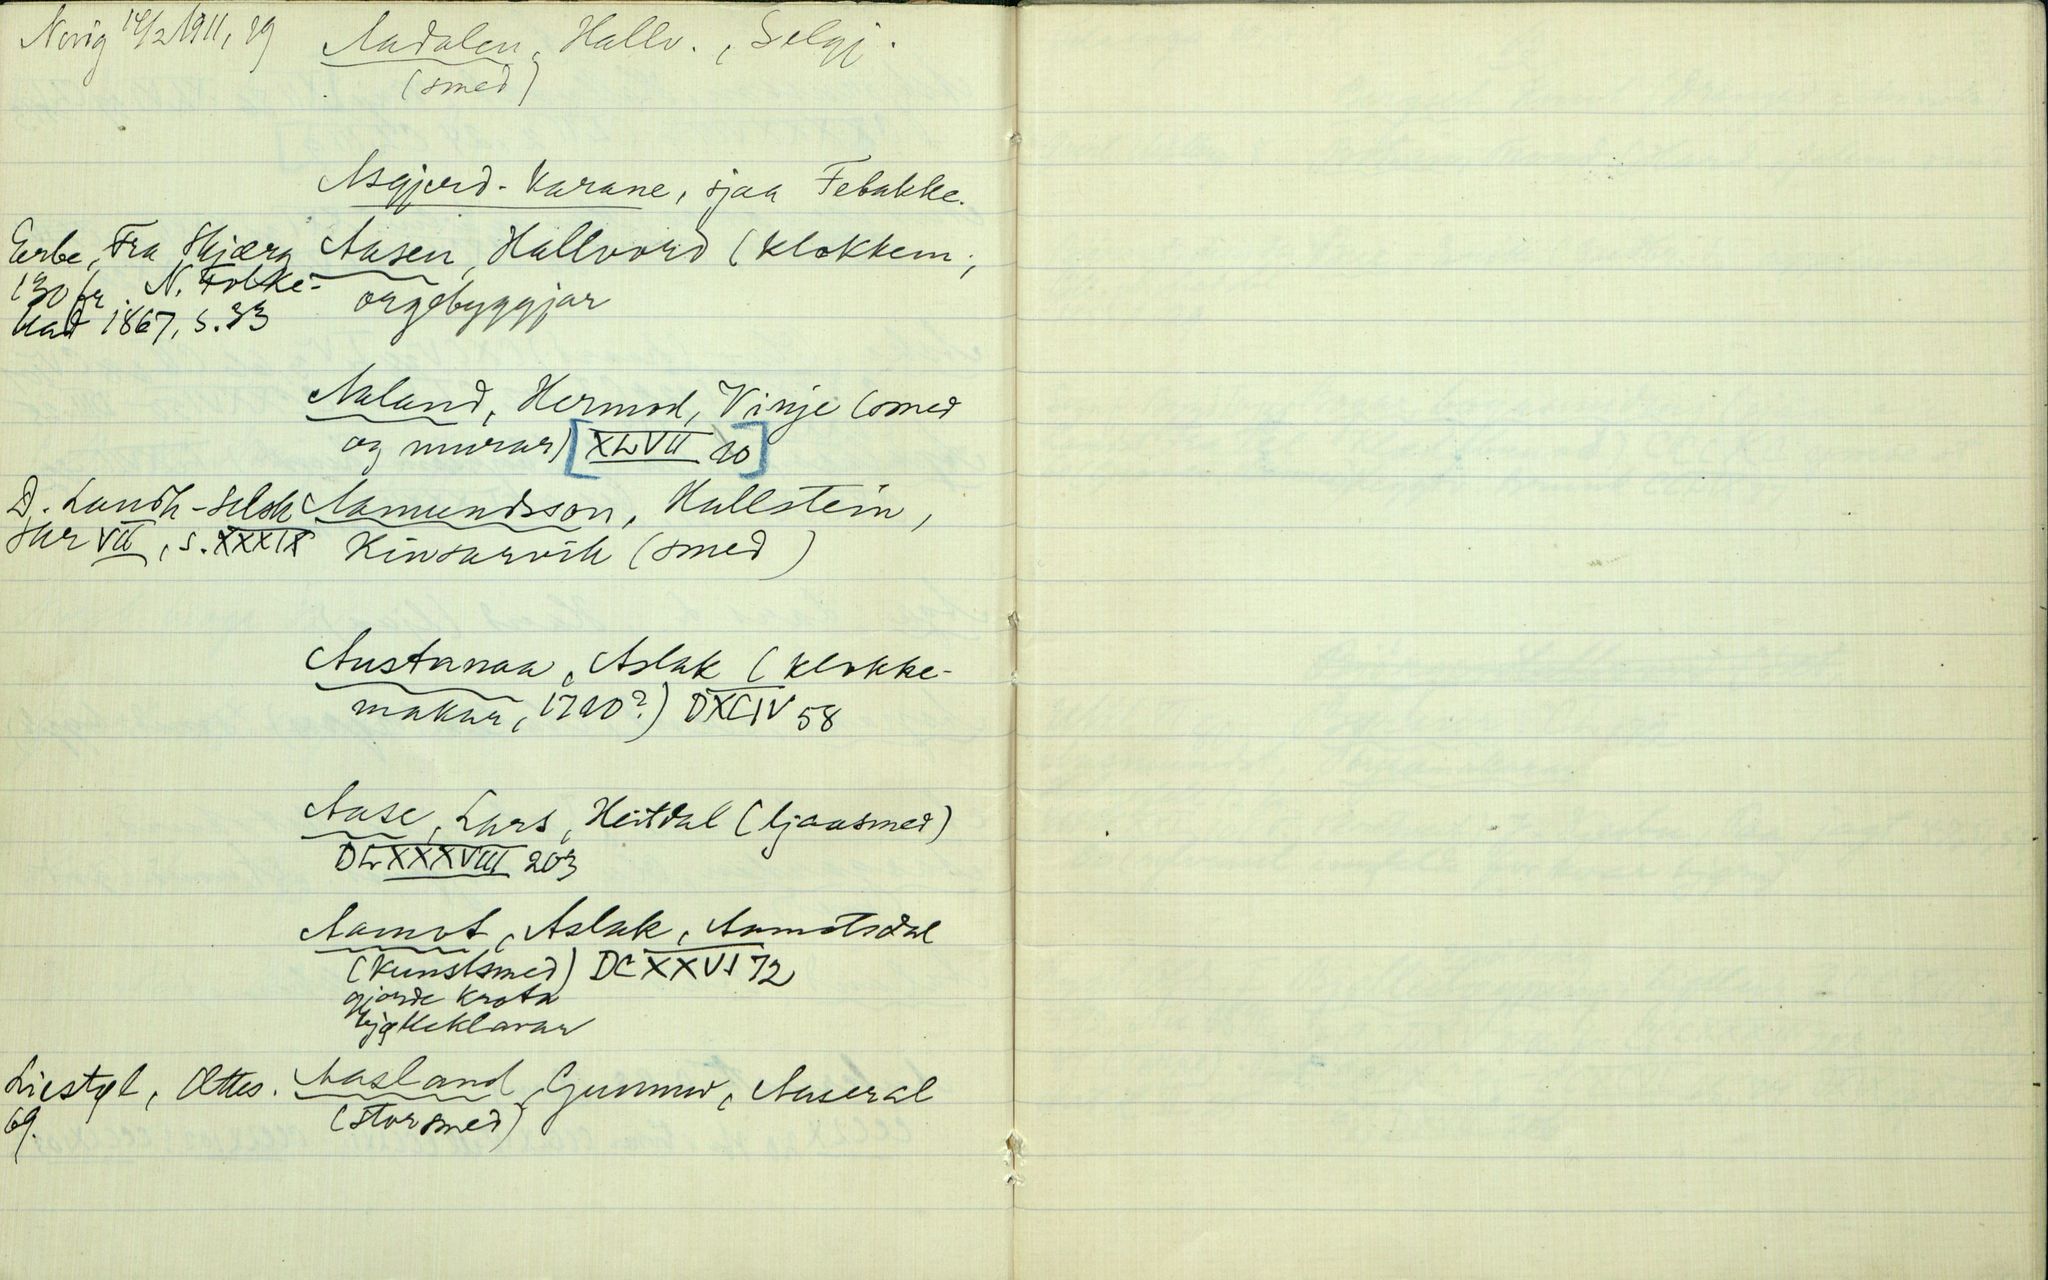 Norig 14/2 1911, 29 Aadalen, Hallv., Selgj.
(smed)
Asgjerd-Karane, sjaa Febakke.
Erbe, Fra Skjærg Aasen, Hallvord (klokkem.,
130 fr. N. Folke- orgebyggjar
blad 1867, s. 33
Aaland, Hermod, Vinje (smed
og murar) [XLVII 20]
D. Landh-selsk Aamundsson, Hallstein,
skr VII, s. XXXIX Kinsarvik (smed)
Austanaa, Aslak (klokke-
makar, 1720?) DXCIV 58
Aase, Lars, Heitdal (ljaasmed)
DLXXXVIII 203
Aamot, Aslak, Aamotsdal
(kunstsmed) DCXXVI 72
gjorde krota
Liestøl, Ættes. Aasland, Gunnar, Aaseral
69. (storsmed)